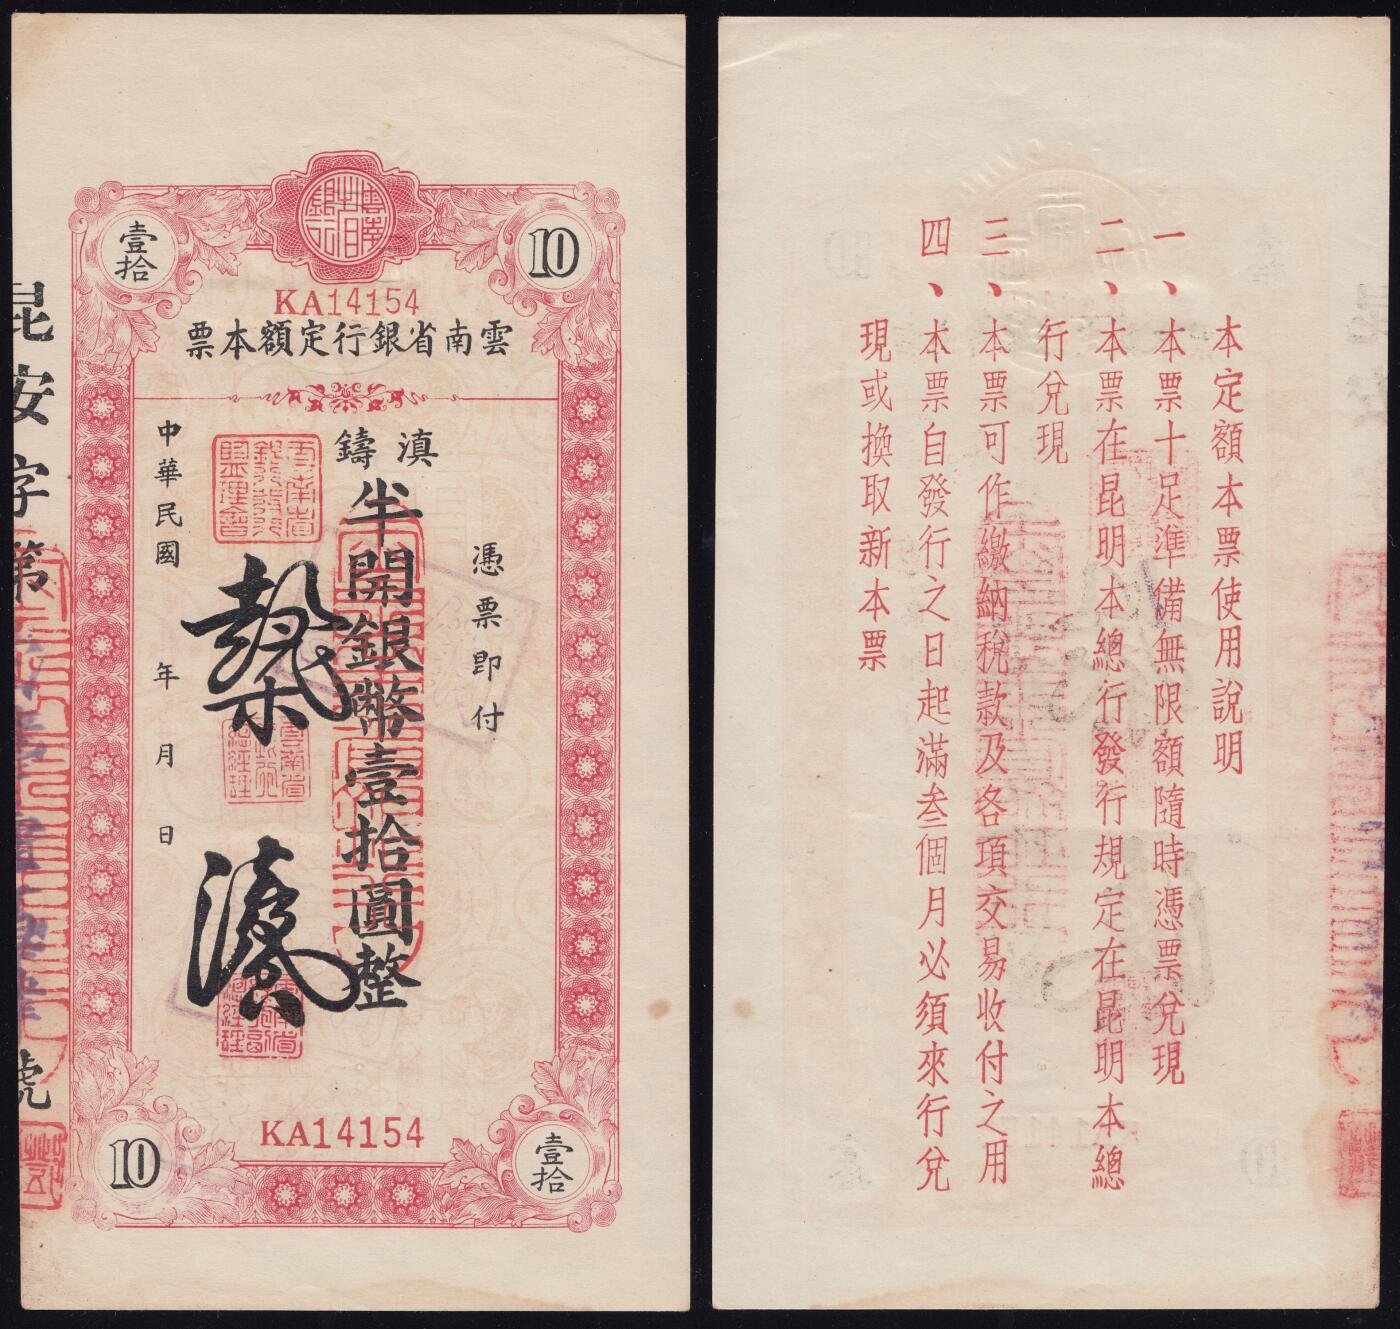 壹拾
10
KA14154
雲南省銀行定額本票
憑票即付
滇鑄
半開銀幣壹拾圓整
中華民國 年 月 日
昆安字第
號
KA14154
10
壹拾
本定額本票使用說明
一、本票十足準備無限額隨時憑票兌現
二、本票在昆明本總行發行規定在昆明本總
行兌現
三、本票可作繳納稅款及各項交易收付之用
四、本票自發行之日起滿叁個月必須來行兌
現或換取新本票